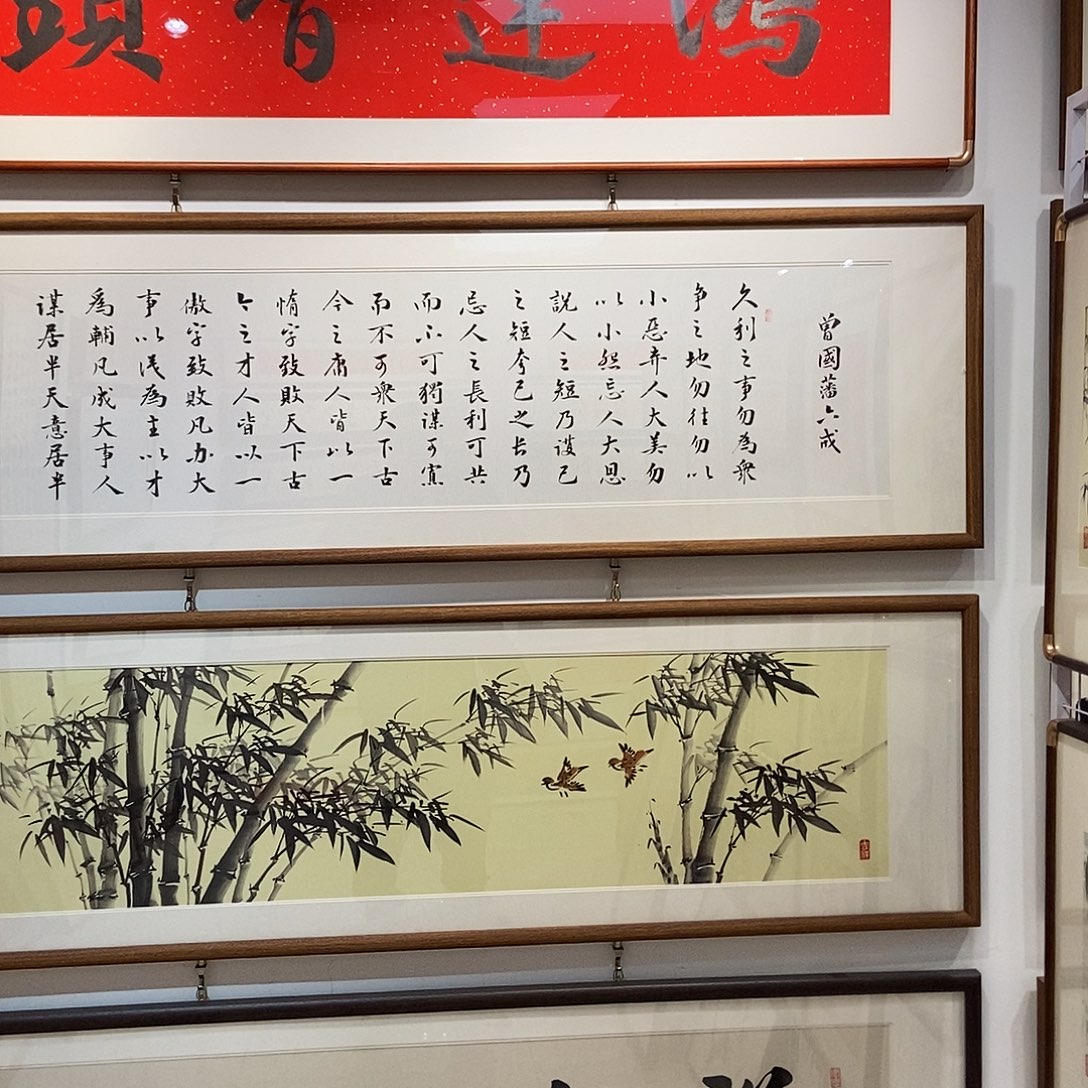 鴻運當頭
曾國藩六戒
久利之事勿為衆
争之地勿往勿以
小惡弃人大美勿
以小怨忘人大恩
説人之短乃護己
之短夸己之长乃
忌人之長利可共
而不可獨谋可寡
而不可衆天下古
今之庸人皆以一
惰字致敗天下古
今之才人皆以一
傲字致敗凡办大
事以识為主以才
為輔凡成大事人
谋居半天意居半